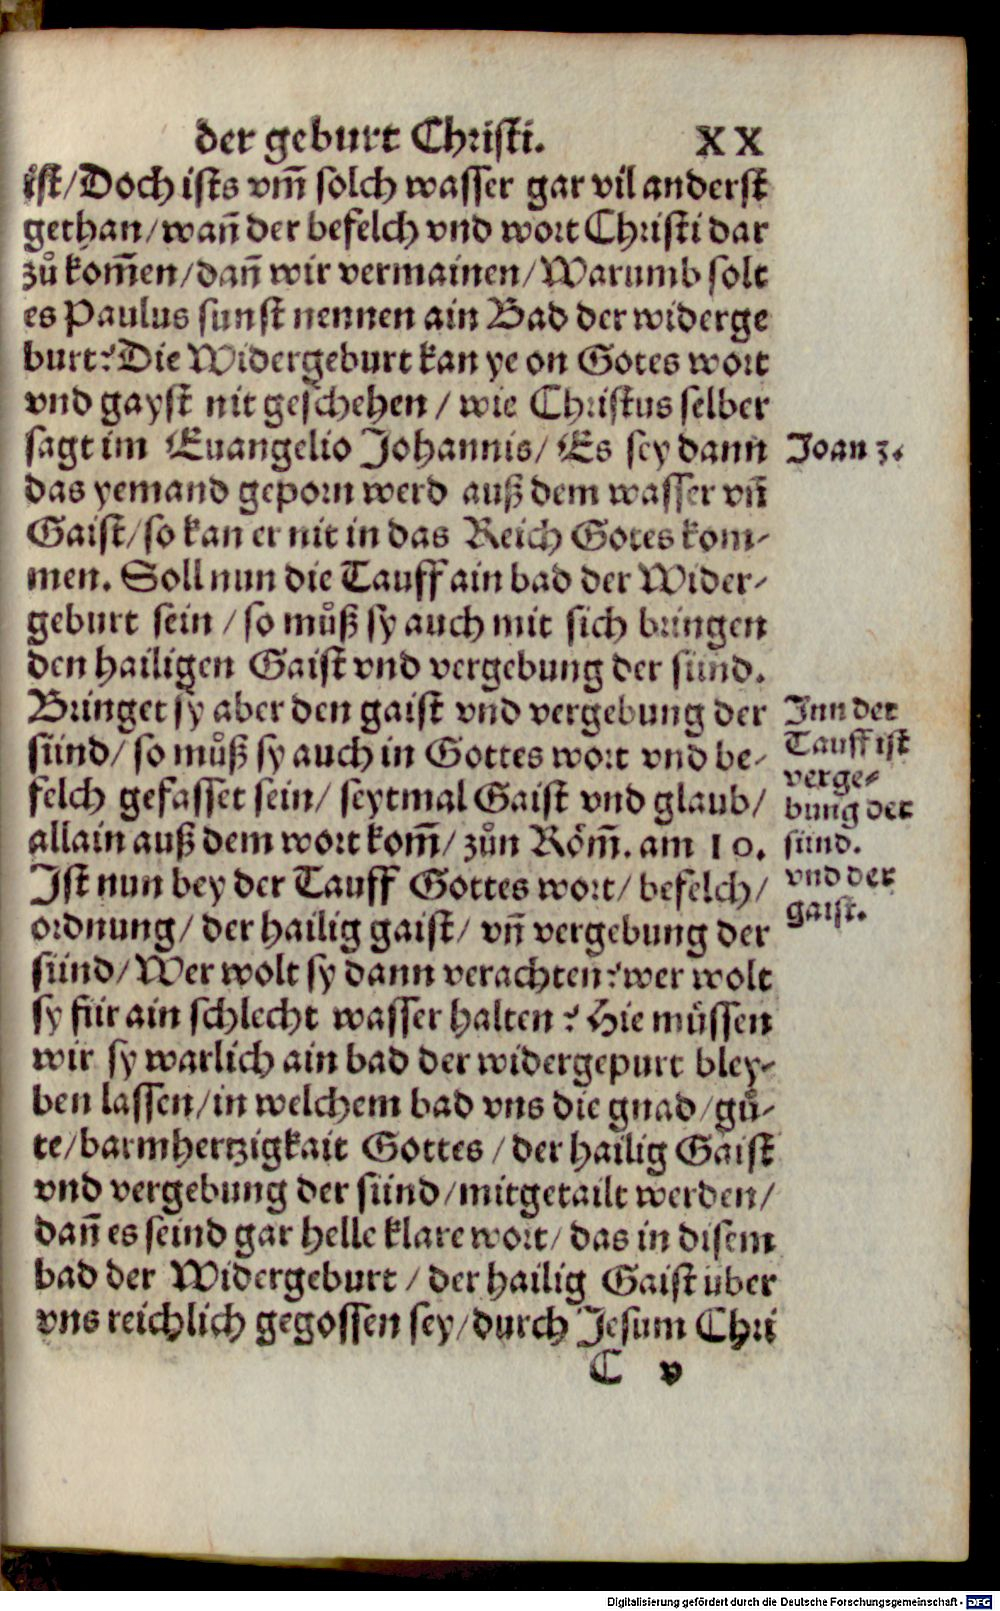 der geburt Christi. XX
ist/Doch ists vm̃ solch wasser gar vil anderst
gethan/wañ der befelch vnd wort Christi dar
zů kom̃en/dañ wir vermainen/Warumb solt
es Paulus sunst nennen ain Bad der widerge
burt? Die Widergeburt kan ye on Gotes wort
vnd gayst nit geschehen/ wie Christus selber
sagt im Euangelio Johannis/ Es sey dann
das yemand geporn werd auß dem wasser vñ
Gaist/so kan er nit in das Reich Gotes kom-
men. Soll nun die Tauff ain bad der Wider-
geburt sein / so můß sy auch mit sich bringen
den hailigen Gaist vnd vergebung der sünd.
Bringet sy aber den gaist vnd vergebung der
sünd/ so můß sy auch in Gottes wort vnd be-
felch gefasset sein/ seytmal Gaist vnd glaub/
allain auß dem wort kom̃/ zůn Röm̃. am 10.
Ist nun bey der Tauff Gottes wort/ befelch/
ordnung/ der hailig gaist/ vñ vergebung der
sünd/Wer wolt sy dann verachten? wer wolt
sy für ain schlecht wasser halten? Hie müssen
wir sy warlich ain bad der widergepurt bley-
ben lassen/in welchem bad vns die gnad/gů-
te/barmhertzigkait Gottes /der hailig Gaist
vnd vergebung der sünd/mitgetailt werden/
dañ es seind gar helle klare wort/ das in disem
bad der Widergeburt / der hailig Gaist uber
vns reichlich gegossen sey/durch Jesum Chri
C v
Joan 3.
Inn der
Tauff ist
verge-
bung der
sünd.
vnd der
gaist.
Digitalisierung gefördert durch die Deutsche Forschungsgemeinschaft - DFG